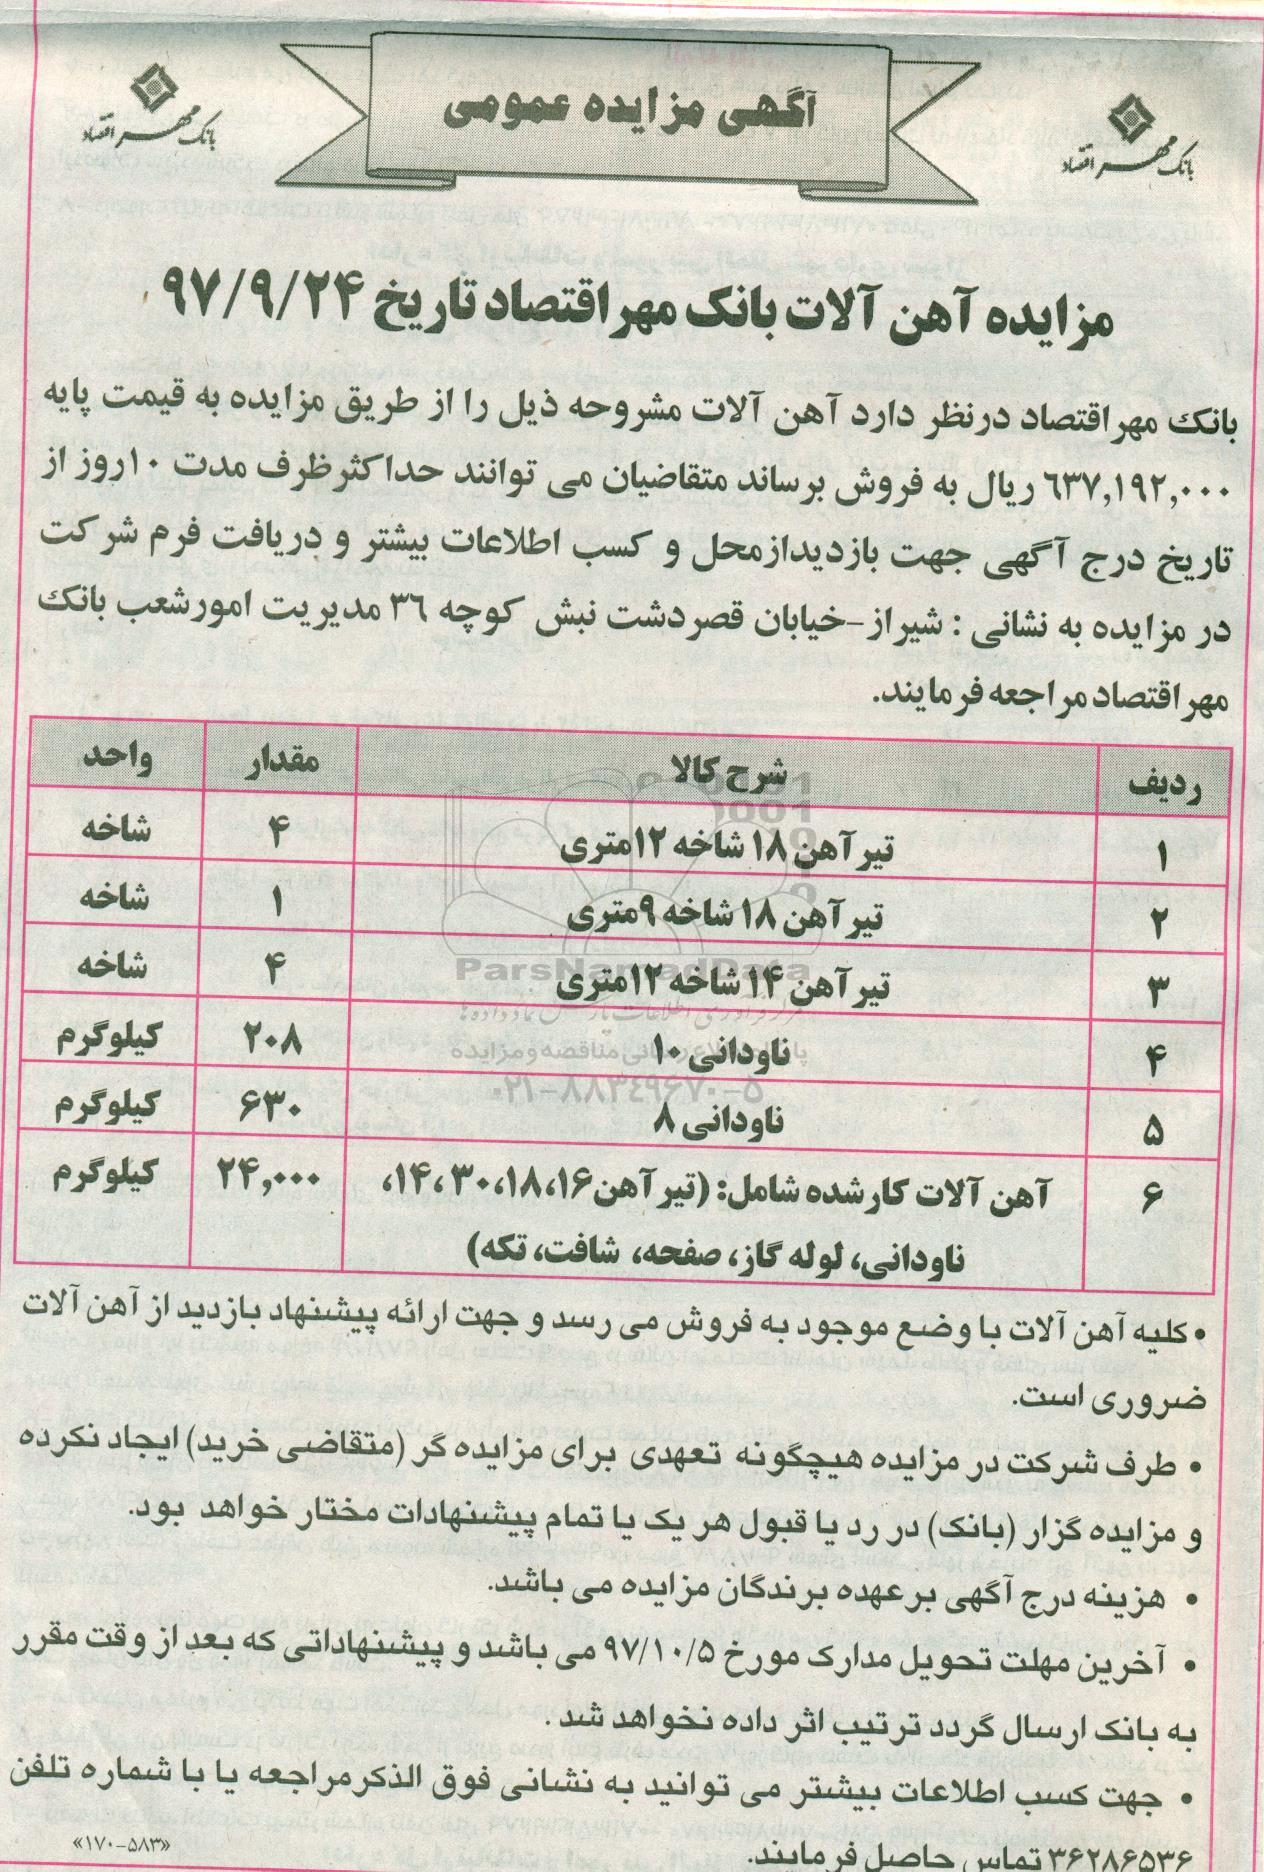 آگهی مزایده عمومی
بانک مهر اقتصاد
بانک مهر اقتصاد
مزایده آهن آلات بانک مهر اقتصاد تاریخ ۹۷/۹/۲۴
بانک مهر اقتصاد درنظر دارد آهن آلات مشروحه ذیل را از طریق مزایده به قیمت پایه
۶۳۷,۱۹۲,۰۰۰ ریال به فروش برساند متقاضیان می توانند حداکثر ظرف مدت ۱۰روز از
تاریخ درج آگهی جهت بازدیدازمحل و کسب اطلاعات بیشتر و دریافت فرم شرکت
در مزایده به نشانی : شیراز-خیابان قصردشت نبش کوچه ۳۶ مدیریت امورشعب بانک
مهر اقتصاد مراجعه فرمایند.
ردیف شرح کالا مقدار واحد
۱ تیرآهن ۱۸ شاخه ۱۲متری ۴ شاخه
۲ تیرآهن ۱۸ شاخه ۹متری ۱ شاخه
۳ تیرآهن ۱۴ شاخه ۱۲متری ۴ شاخه
۴ ناودانی ۱۰ ۲۰۸ کیلوگرم
۵ ناودانی ۸ ۶۳۰ کیلوگرم
۶ آهن آلات کارشده شامل: (تیرآهن۱۶،۱۸،۳۰، ۱۴، ۲۴,۰۰۰ کیلوگرم
ناودانی، لوله گاز، صفحه، شافت، تکه)
ParsNamadData
پایگاه اطلاع رسانی مناقصه و مزایده
۰۲۱-۸۸۳۴۹۶۷۰-۵
• کلیه آهن آلات با وضع موجود به فروش می رسد و جهت ارائه پیشنهاد بازدید از آهن آلات
ضروری است.
• طرف شرکت در مزایده هیچگونه تعهدی برای مزایده گر (متقاضی خرید) ایجاد نکرده
و مزایده گزار (بانک) در رد یا قبول هر یک یا تمام پیشنهادات مختار خواهد بود.
• هزینه درج آگهی برعهده برندگان مزایده می باشد.
• آخرین مهلت تحویل مدارک مورخ ۹۷/۱۰/۵ می باشد و پیشنهاداتی که بعد از وقت مقرر
به بانک ارسال گردد ترتیب اثر داده نخواهد شد .
• جهت کسب اطلاعات بیشتر می توانید به نشانی فوق الذکر مراجعه یا با شماره تلفن
۳۶۲۸۶۵۳۶ تماس حاصل فرمایند.
«۱۷۰-۵۸۳»